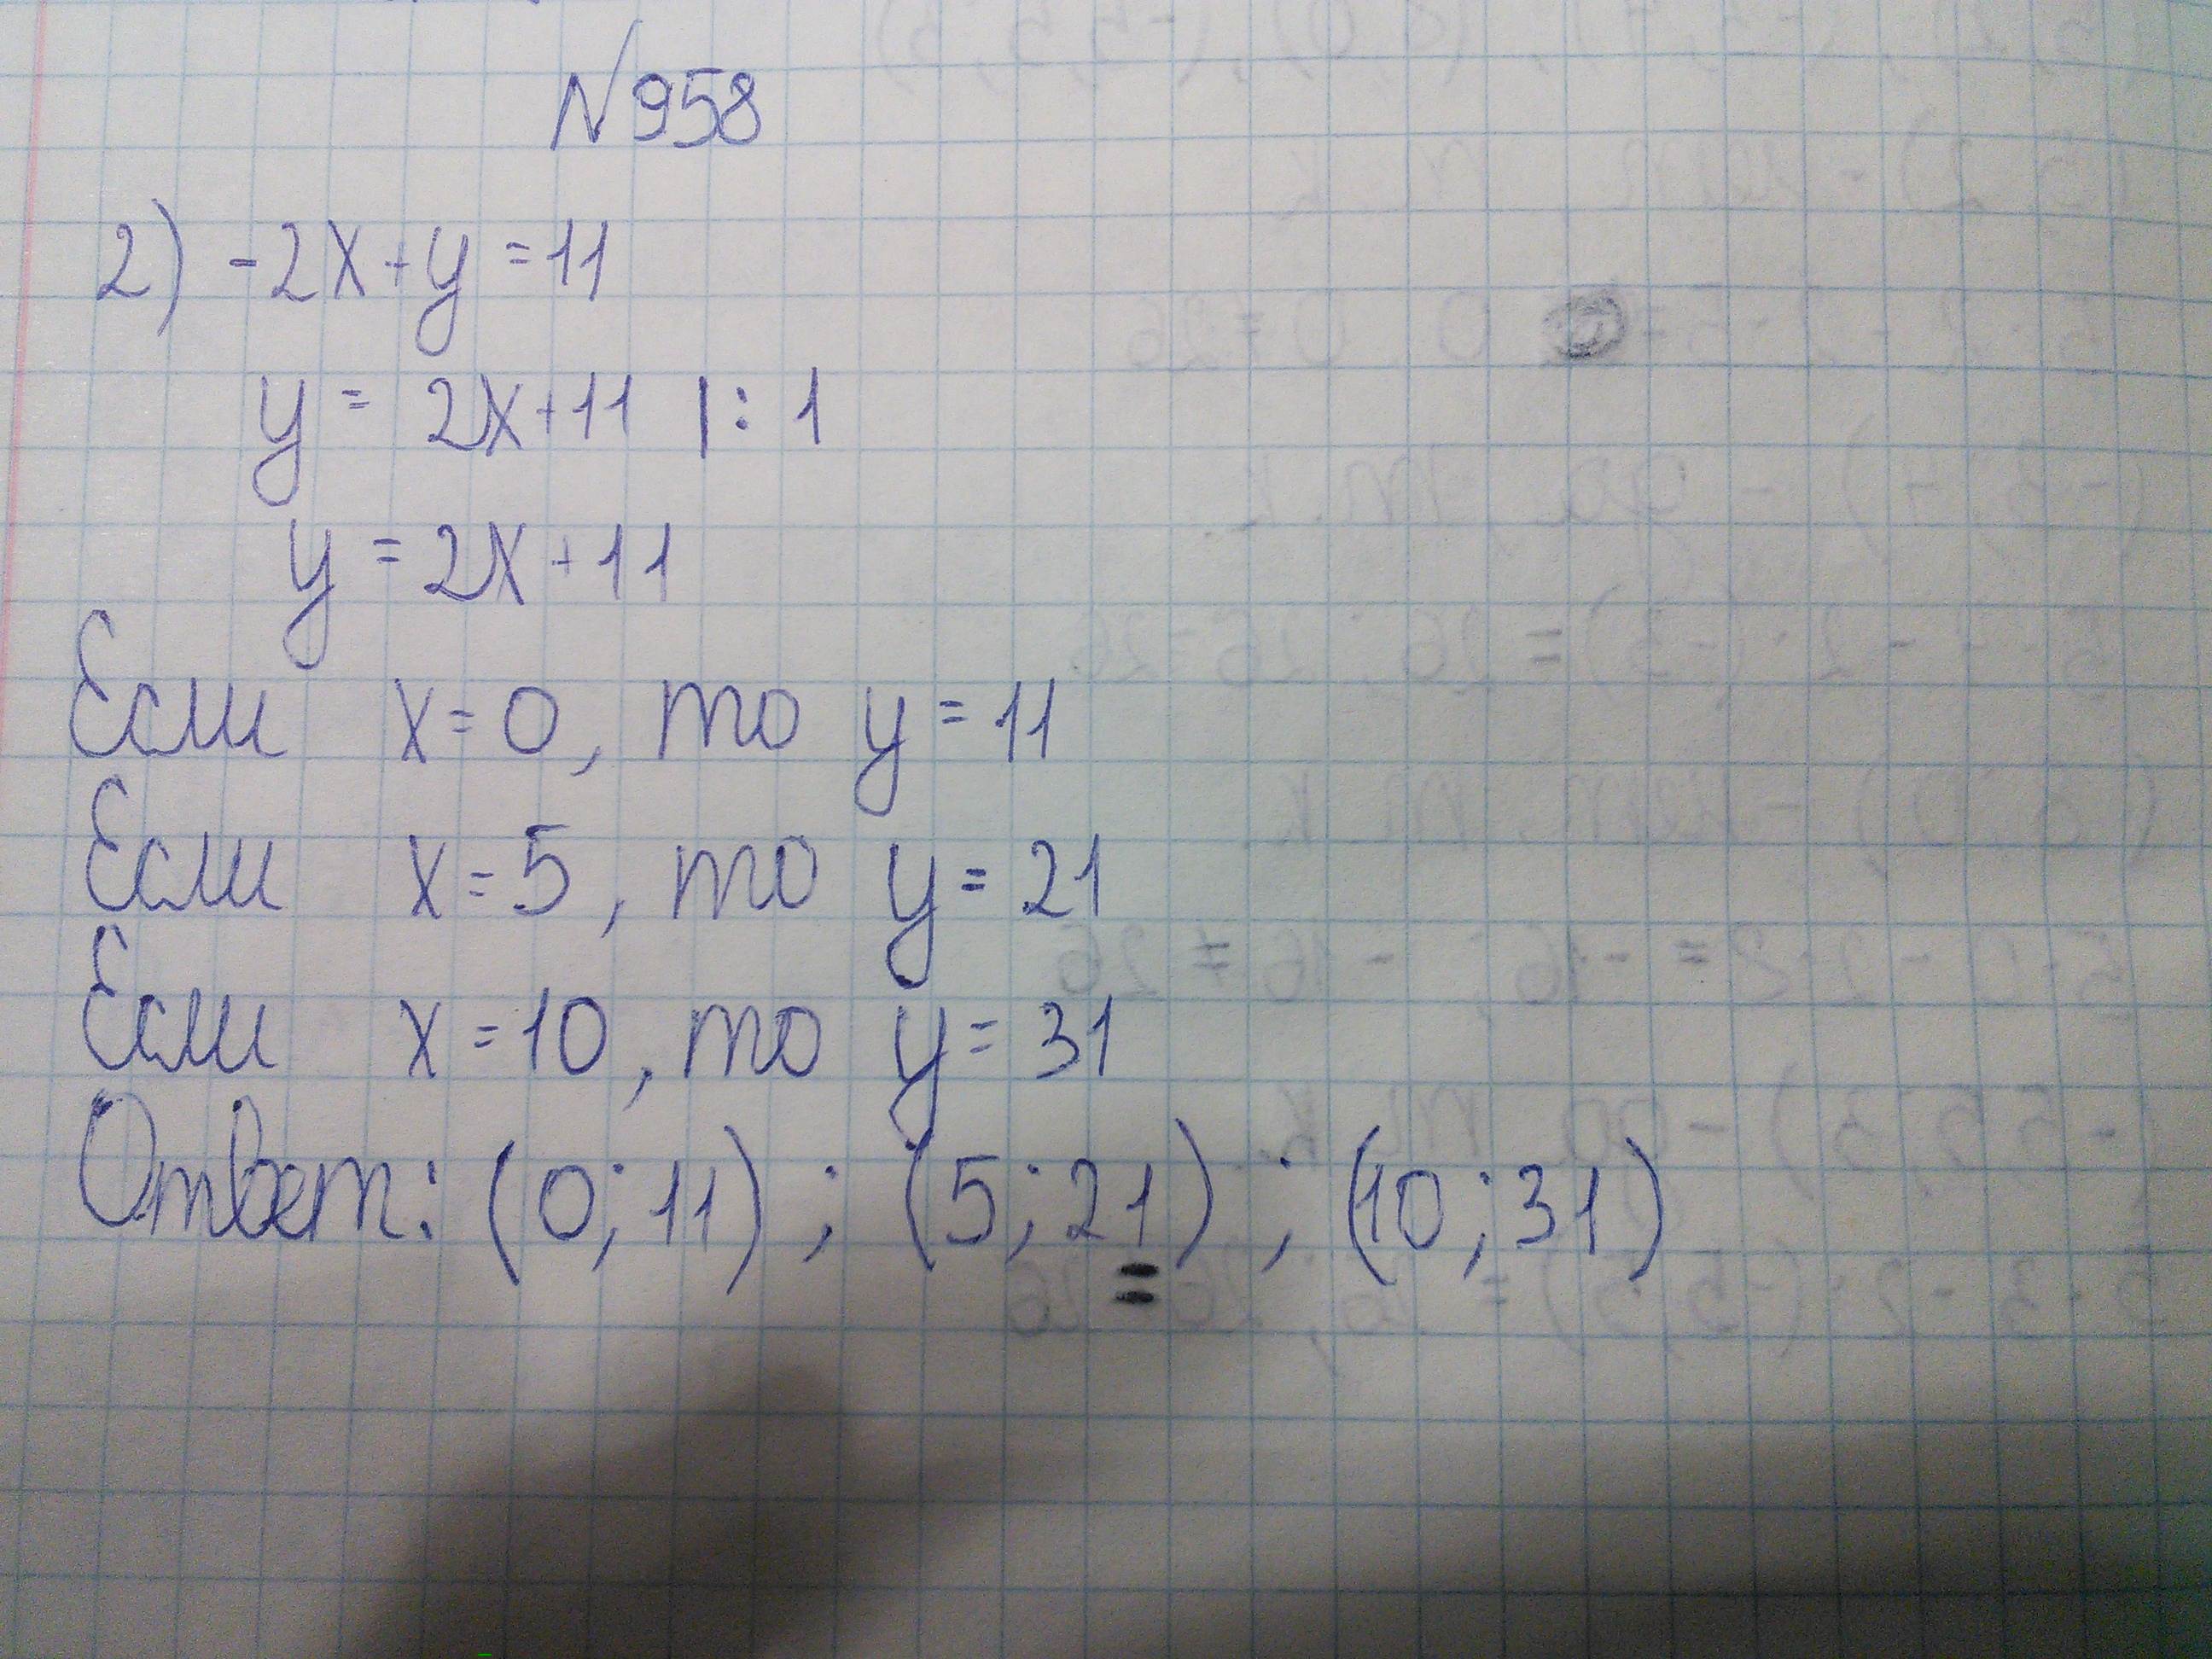 №958
2) -2x+y=11
y = 2x+11 |: 1
y = 2x+11
Если x=0, то y=11
Если x=5, то y=21
Если x=10, то y=31
Ответ: (0;11) ; (5;21) ; (10;31)